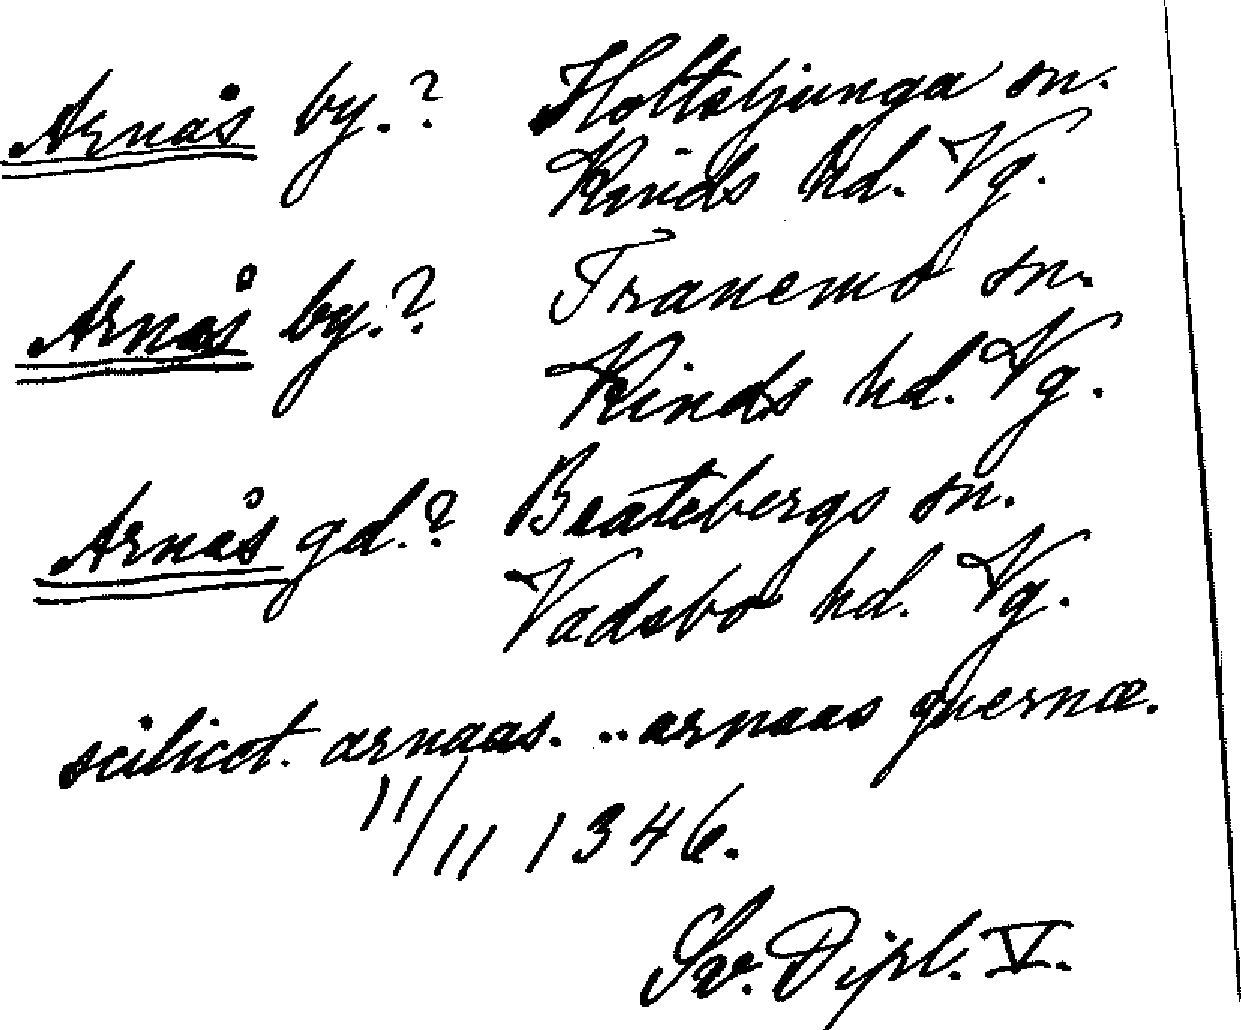 Arnås by.? Holtsljunga sn.
Kinds hd. Vg.
Arnås by.? Tranemo sn.
Kinds hd. Vg.
Arnås gd.? Beatebergs sn.
Vadsbo hd. Vg.
scilicet. arnaas. .. arnaas quernæ.
11/11 1346.
Sv. Dipl. V.